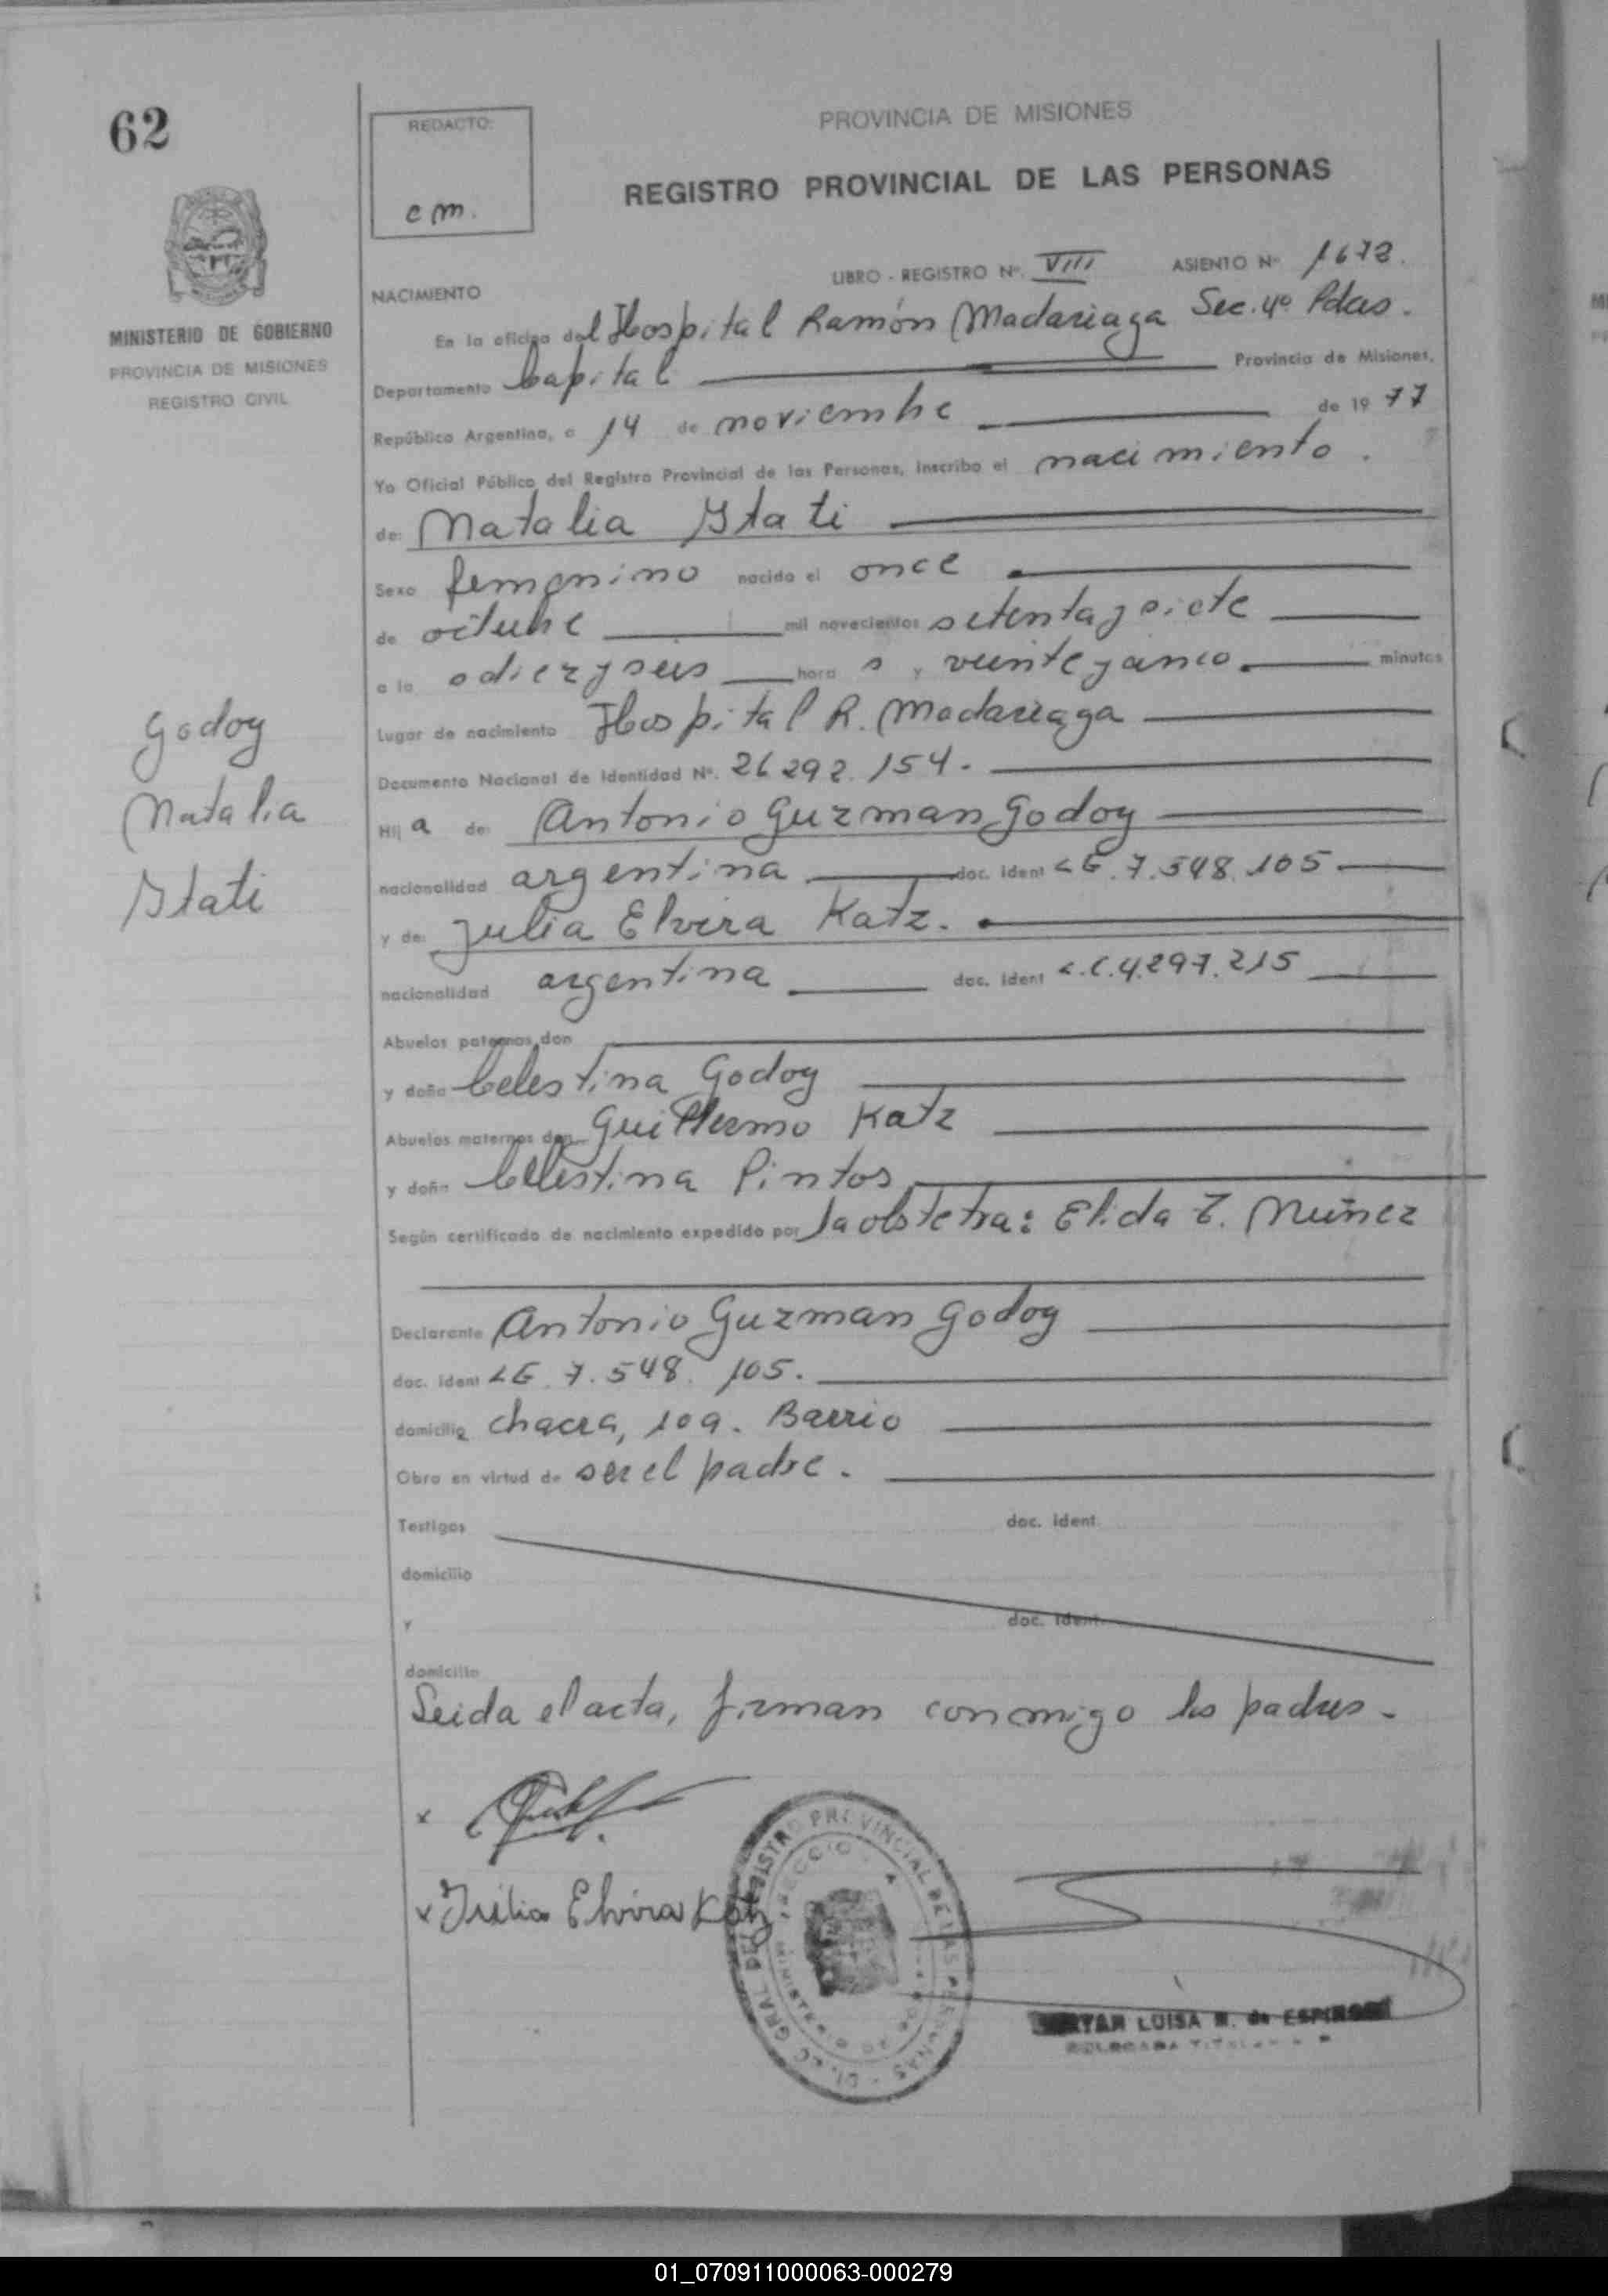 62
REDACTO:
c m.
PROVINCIA DE MISIONES
REGISTRO PROVINCIAL DE LAS PERSONAS
MINISTERIO DE GOBIERNO
PROVINCIA DE MISIONES
REGISTRO CIVIL
LIBRO - REGISTRO Nº. VIII ASIENTO Nº 1672.
NACIMIENTO
En la oficina del Hospital Ramón Madariaga Sec. 4º Pdas.
Departamento Capital Provincia de Misiones,
República Argentina, a 14 de noviembre de 19 77
Yo Oficial Público del Registro Provincial de las Personas, inscribo el nacimiento.
de: Natalia Itati
Sexo femenino nacido el once
de octubre mil novecientos setenta y siete
a la s diez y seis hora s y veinte y cinco minutos
Lugar de nacimiento Hospital R. Madariaga
Documento Nacional de Identidad Nº. 26 292. 154.
Hij a de: Antonio Guzman Godoy
nacionalidad argentina doc. ident LE. 7.548.105
y de: Julia Elvira Katz.
nacionalidad argentina doc. ident L.C.4.297.215
Abuelos paternos, don
y doña Celestina Godoy
Abuelos maternos don Guillermo Katz
y doña Celestina Pintos
Según certificado de nacimiento expedido por la obstetra: Elida Z. Nuñez
Declarante Antonio Guzman Godoy
doc. ident LE. 7.548.105.
domicilio chacra, 109. Barrio
Obra en virtud de ser el padre.
Testigos doc. ident.
domicilio
y doc. ident.
domicilio
Leida el acta, firman conmigo los padres.
Godoy
Natalia
Itati
x
x Julia Elvira Katz
LUISA M. de ESPINOSA
01_070911000063-000279